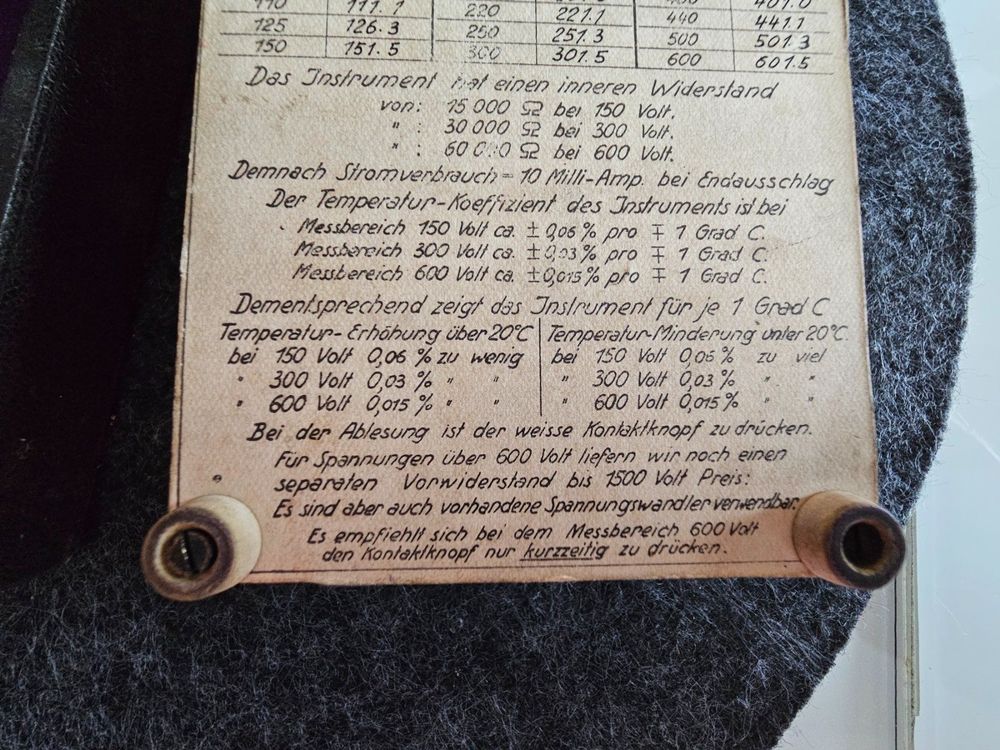 110 111.1 220 221.1 440 441.1
125 126.3 250 251.3 500 501.3
150 151.5 300 301.5 600 601.5
Das Instrument hat einen inneren Widerstand
von: 15 000 Ω bei 150 Volt.
" : 30 000 Ω bei 300 Volt.
" : 60 000 Ω bei 600 Volt.
Demnach Stromverbrauch = 10 Milli-Amp. bei Endausschlag
Der Temperatur-Koeffizient des Instruments ist bei
Messbereich 150 Volt ca. ± 0,06 % pro ∓ 1 Grad C.
Messbereich 300 Volt ca. ± 0,03 % pro ∓ 1 Grad C.
Messbereich 600 Volt ca. ± 0,015 % pro ∓ 1 Grad C.
Dementsprechend zeigt das Instrument für je 1 Grad C
Temperatur-Erhöhung über 20°C
bei 150 Volt 0,06 % zu wenig
" 300 Volt 0,03 % " "
" 600 Volt 0,015 % " "
Temperatur-Minderung unter 20°C.
bei 150 Volt 0,06 % zu viel
" 300 Volt 0,03 % " "
" 600 Volt 0,015 % " "
Bei der Ablesung ist der weisse Kontaktknopf zu drücken.
Für Spannungen über 600 Volt liefern wir noch einen
separaten Vorwiderstand bis 1500 Volt Preis:
Es sind aber auch vorhandene Spannungswandler verwendbar.
Es empfiehlt sich bei dem Messbereich 600 Volt
den Kontaktknopf nur kurzzeitig zu drücken.